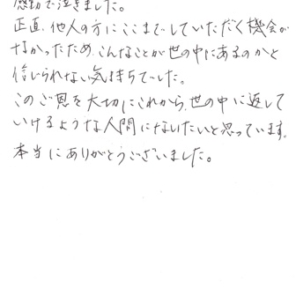 感動で泣きました。
正直、他人の方にここまでしていただく機会が
なかったため、こんなことが世の中にあるのかと
信じられない気持ちでした。
このご恩を大切にこれから、世の中に返して
いけるような人間になりたいと思っています。
本当にありがとうございました。